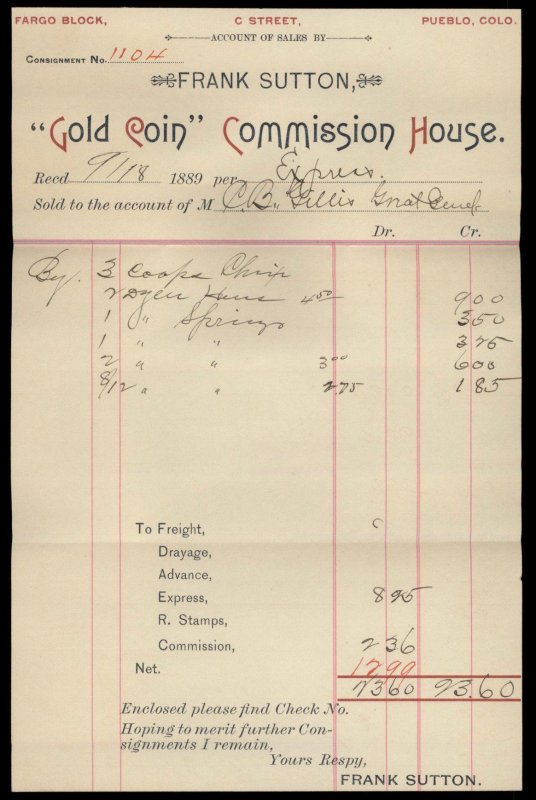 FARGO BLOCK, C STREET, PUEBLO, COLO.
ACCOUNT OF SALES BY
CONSIGNMENT No. 1104
FRANK SUTTON,
"Gold Coin" Commission House.
Recd 9/18 1889 per Express.
Sold to the account of M C. B. Gillis
Dr. Cr.
By. 3 Coops
2 Hens 4 50 9 00
1 " Springs 3 50
1 " " 3 25
2 " " 3 00 6 00
8/12 " " 2.75 1 85
To Freight,
Drayage,
Advance,
Express, 8 95
R. Stamps,
Commission, 2 36
Net. 12 99
23 60 23.60
Enclosed please find Check No.
Hoping to merit further Con-
signments I remain,
Yours Respy,
FRANK SUTTON.